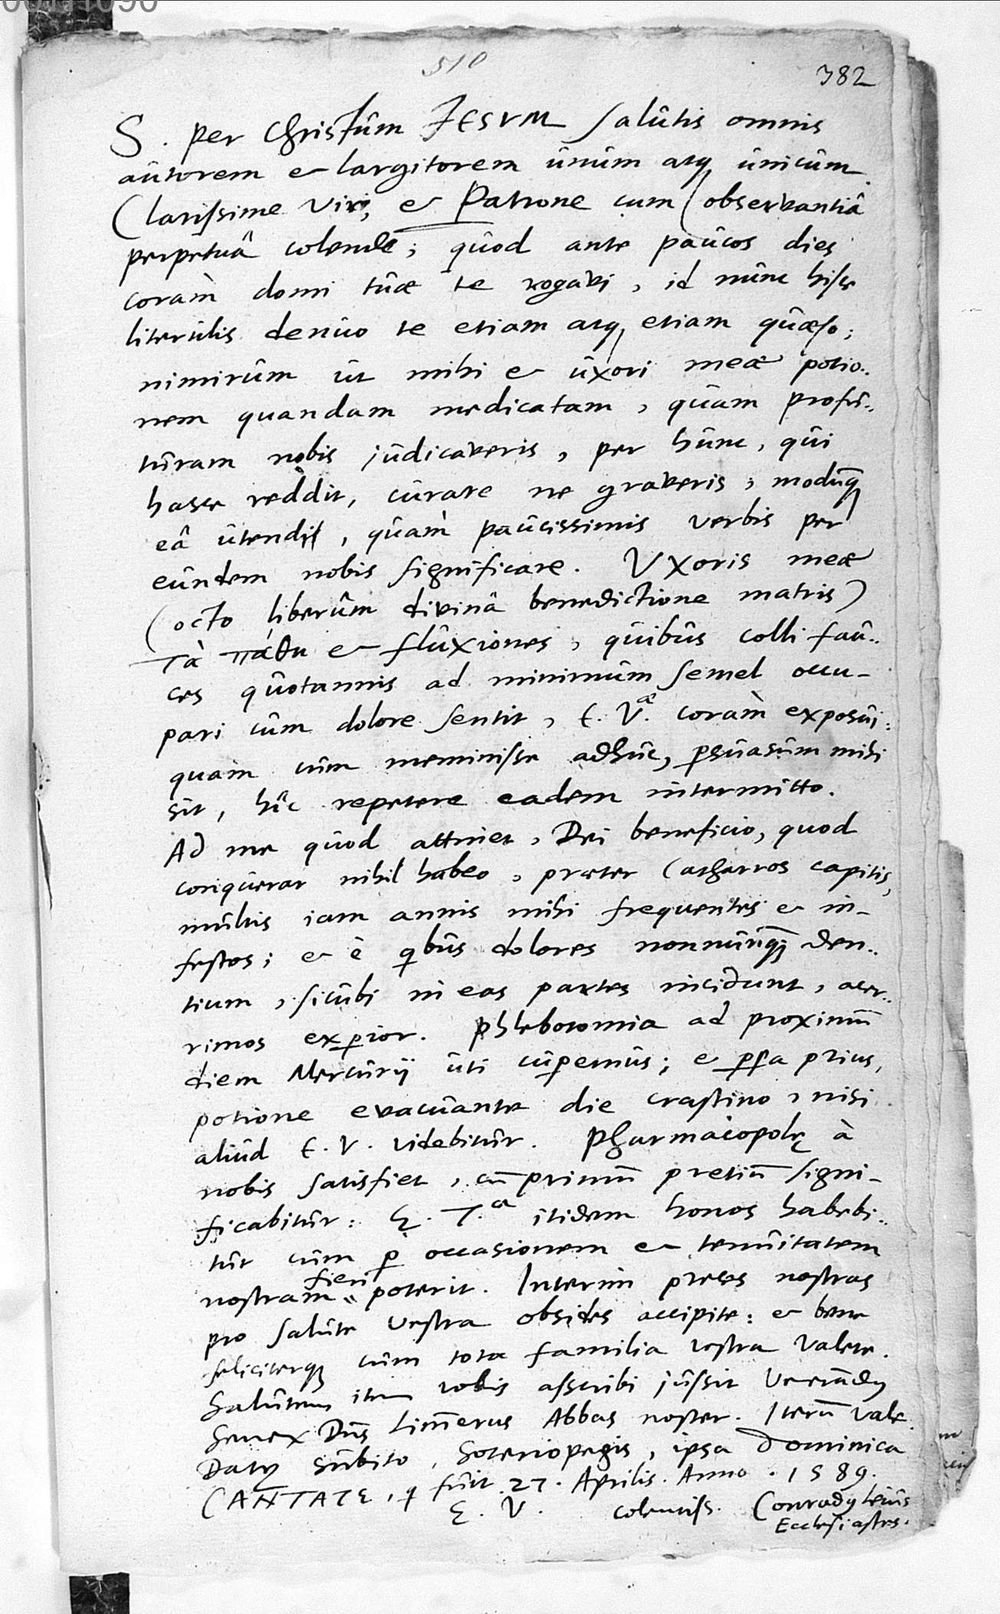 510
382
S. Per Christum JESVM salûtis omnis
aûtorem & largitorem ûnûm atq; ûnicûm.
Clarissime Vir, & Patrone cum observantiâ
perpetuâ colende; quôd ante paûcos dies
coràm domi tûae te rogavi, id nûnc hisce
literûlis denûo te etiam atq; etiam quaeso;
nimirûm ût mihi & ûxori meae potio..
nem quandam medicatam, quam profû..
tûram nobis jûdicaveris, per hûnc, qûi
hasce reddit, cûrare ne graveris, modûq;
eâ ûtendi, quàm paûcissimis verbis per
eûndem nobis significare. Vxoris meae
(octo liberûm divinâ benedictione matris)
τὰ πάθη & flûxiones, qûibûs colli faû..
ces quotannis ad minimûm semel occu-
pari cûm dolore sentit, E. V.ae coràm exposûi:
quam cûm meminisse adhûc, psûasûm mihi
sit, hîc repetere eadem intermitto.
Ad me qûod attinet, Dei beneficio, quod
conqûerar nihil habeo, praeter Catharros capitis,
mûltis iam annis mihi frequentes & in-
festos; & è qbûs dolores nonnûnq; den..
tium, sicûbi in eas partes incidunt, acer..
rimos expior. Phlebotomia ad proximû
diem Mercûrij ûti cûpemûs; & pssa prius,
potione evacûante die crastino, nisi
aliûd E. V. videbitûr. Pharmacopolę à
nobis satisfiet, cû primû pretiû signi-
ficabitûr: E. T.ae itidem honos habebi..
tûr cûm p occasionem & tenûitatem
nostram fieri poterit. Interim preces nostras
pro salûte vestra obsides accipite: & bene
feliciterq; cûm tota familia vestra valete.
Salûtem item vobis asscribi jûssit Venerandq
Senex Dns Limerus Abbas noster. Iterû vale.
Datq sûbito, Soteriopegis, ipsa Dominica
CANTATE, q fûit 27. Aprilis. Anno. 1589.
E. V. colentiss. Conradq Leiûs
Ecclesiastes.